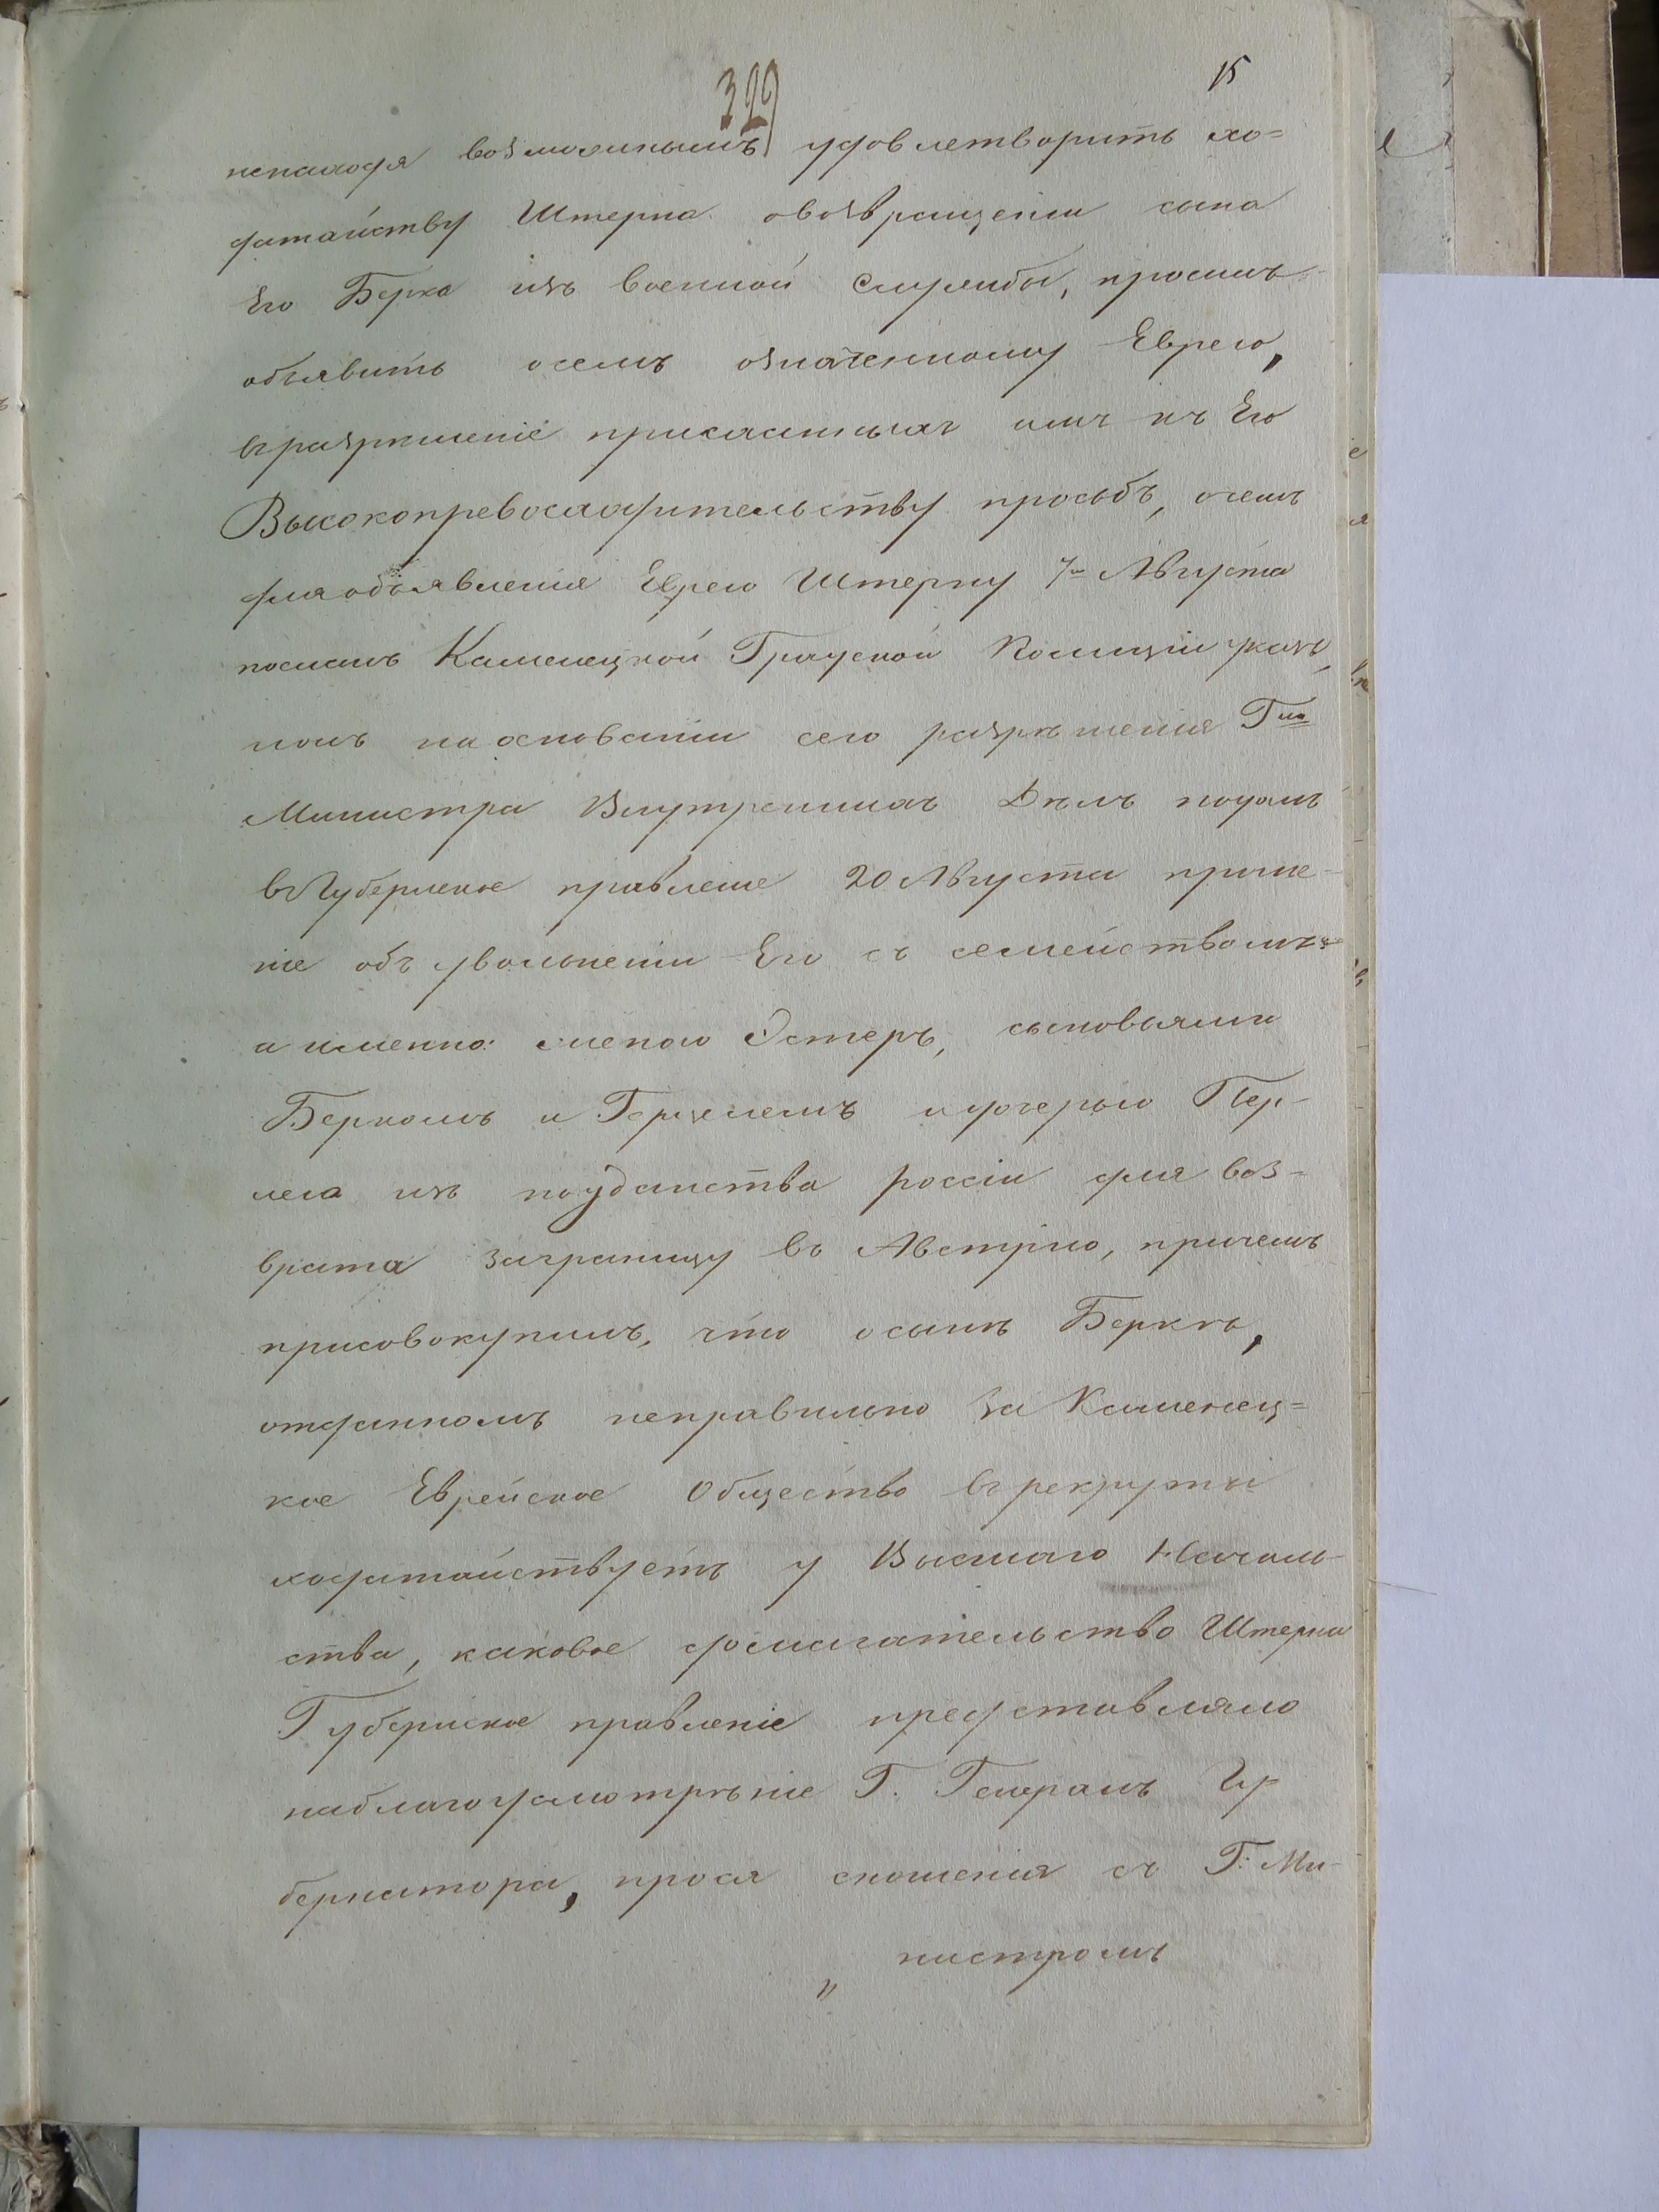 329
15
ненаходя возможнымъ удовлетворить хо=
датайству Штерна овозвращеніи сына
Его Берка изъ военной Службы, проситъ
объявить осемъ означенному Еврею,
вразрѣшеніе присланныхъ имъ къ Его
Высокопревосходительству просьбъ, осемъ
дляобъявленія Еврею Штерну 7го Августа
посланъ Каменецкой Градской Полиціи указъ,
нонъ наоснованіи сего разрѣшенія Гна
Министра Внутреннихъ Дѣлъ подалъ
вГубернское правленіе 20 Августа проше-
ніе объ увольненіи Его съ семействомъ
а именно: женою Эстеръ, сыновьями
Беркомъ и Герщелемъ идочерью Пер-
лею изъ подданства россіи для воз=
врата заграницу въ Австрію, причемъ
присовокупилъ, что осынѣ Беркѣ,
отданномъ неправильно за Каменец=
кое Еврейское Общество врекруты
ходатайствуетъ у Высшаго Началь-
ства, каковое домагательство Штерна
Губернское правленіе представляло
наблагоусмотрѣніе Г. Генералъ Гу-
бернатора, прося сношенія съ Г. Ми-
„ нистромъ